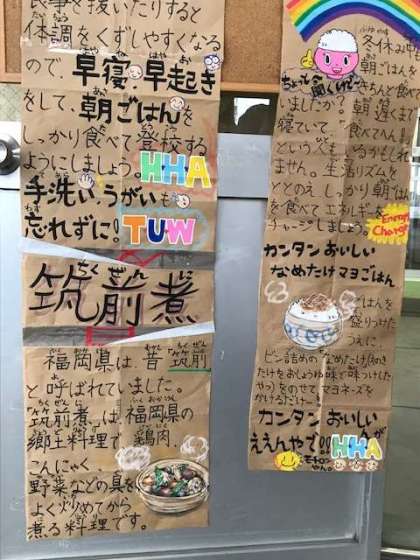 食事を抜いたりすると
体調をくずしやすくなる
ので、早寝、早起き
をして、朝ごはんを
しっかり食べて登校する
ようにしましょう。HHA
手洗い、うがいも
忘れずに!TUW
筑前煮
ちくぜんに
福岡県は、昔「筑前」
と呼ばれていました。
「筑前煮」は、福岡県の
郷土料理で、鶏肉、
こんにゃく、
野菜などの具を
よく炒めてから
煮る料理です。
冬休み中
ちょっと聞くけど
朝ごはん
きちんと食べて
いましたか?朝遅くまで
寝ていて、食べてへん!
という人もいるかもしれ
ません。生活リズムを
ととのえ、しっかり朝ごはん
を食べてエネルギーを
チャージしましょう。Energy Charge
カンタンおいしい
なめたけマヨごはん
ごはんを
盛りつけた
うえに、
ビン詰めのなめたけ(えのき
たけをしょうゆ味で味つけした
やつ)をのせてマヨネーズを
かけるだけ〜
カンタンおいしい
ええんやで!!HHAが
モットーやん。